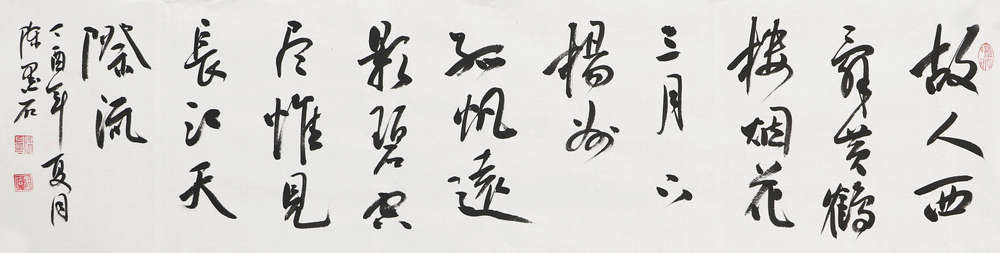 故人西
辞黄鹤
楼烟花
三月下
揚州
孤帆遠
影碧空
尽惟見
長江天
際流
丁酉年夏月
陈墨石